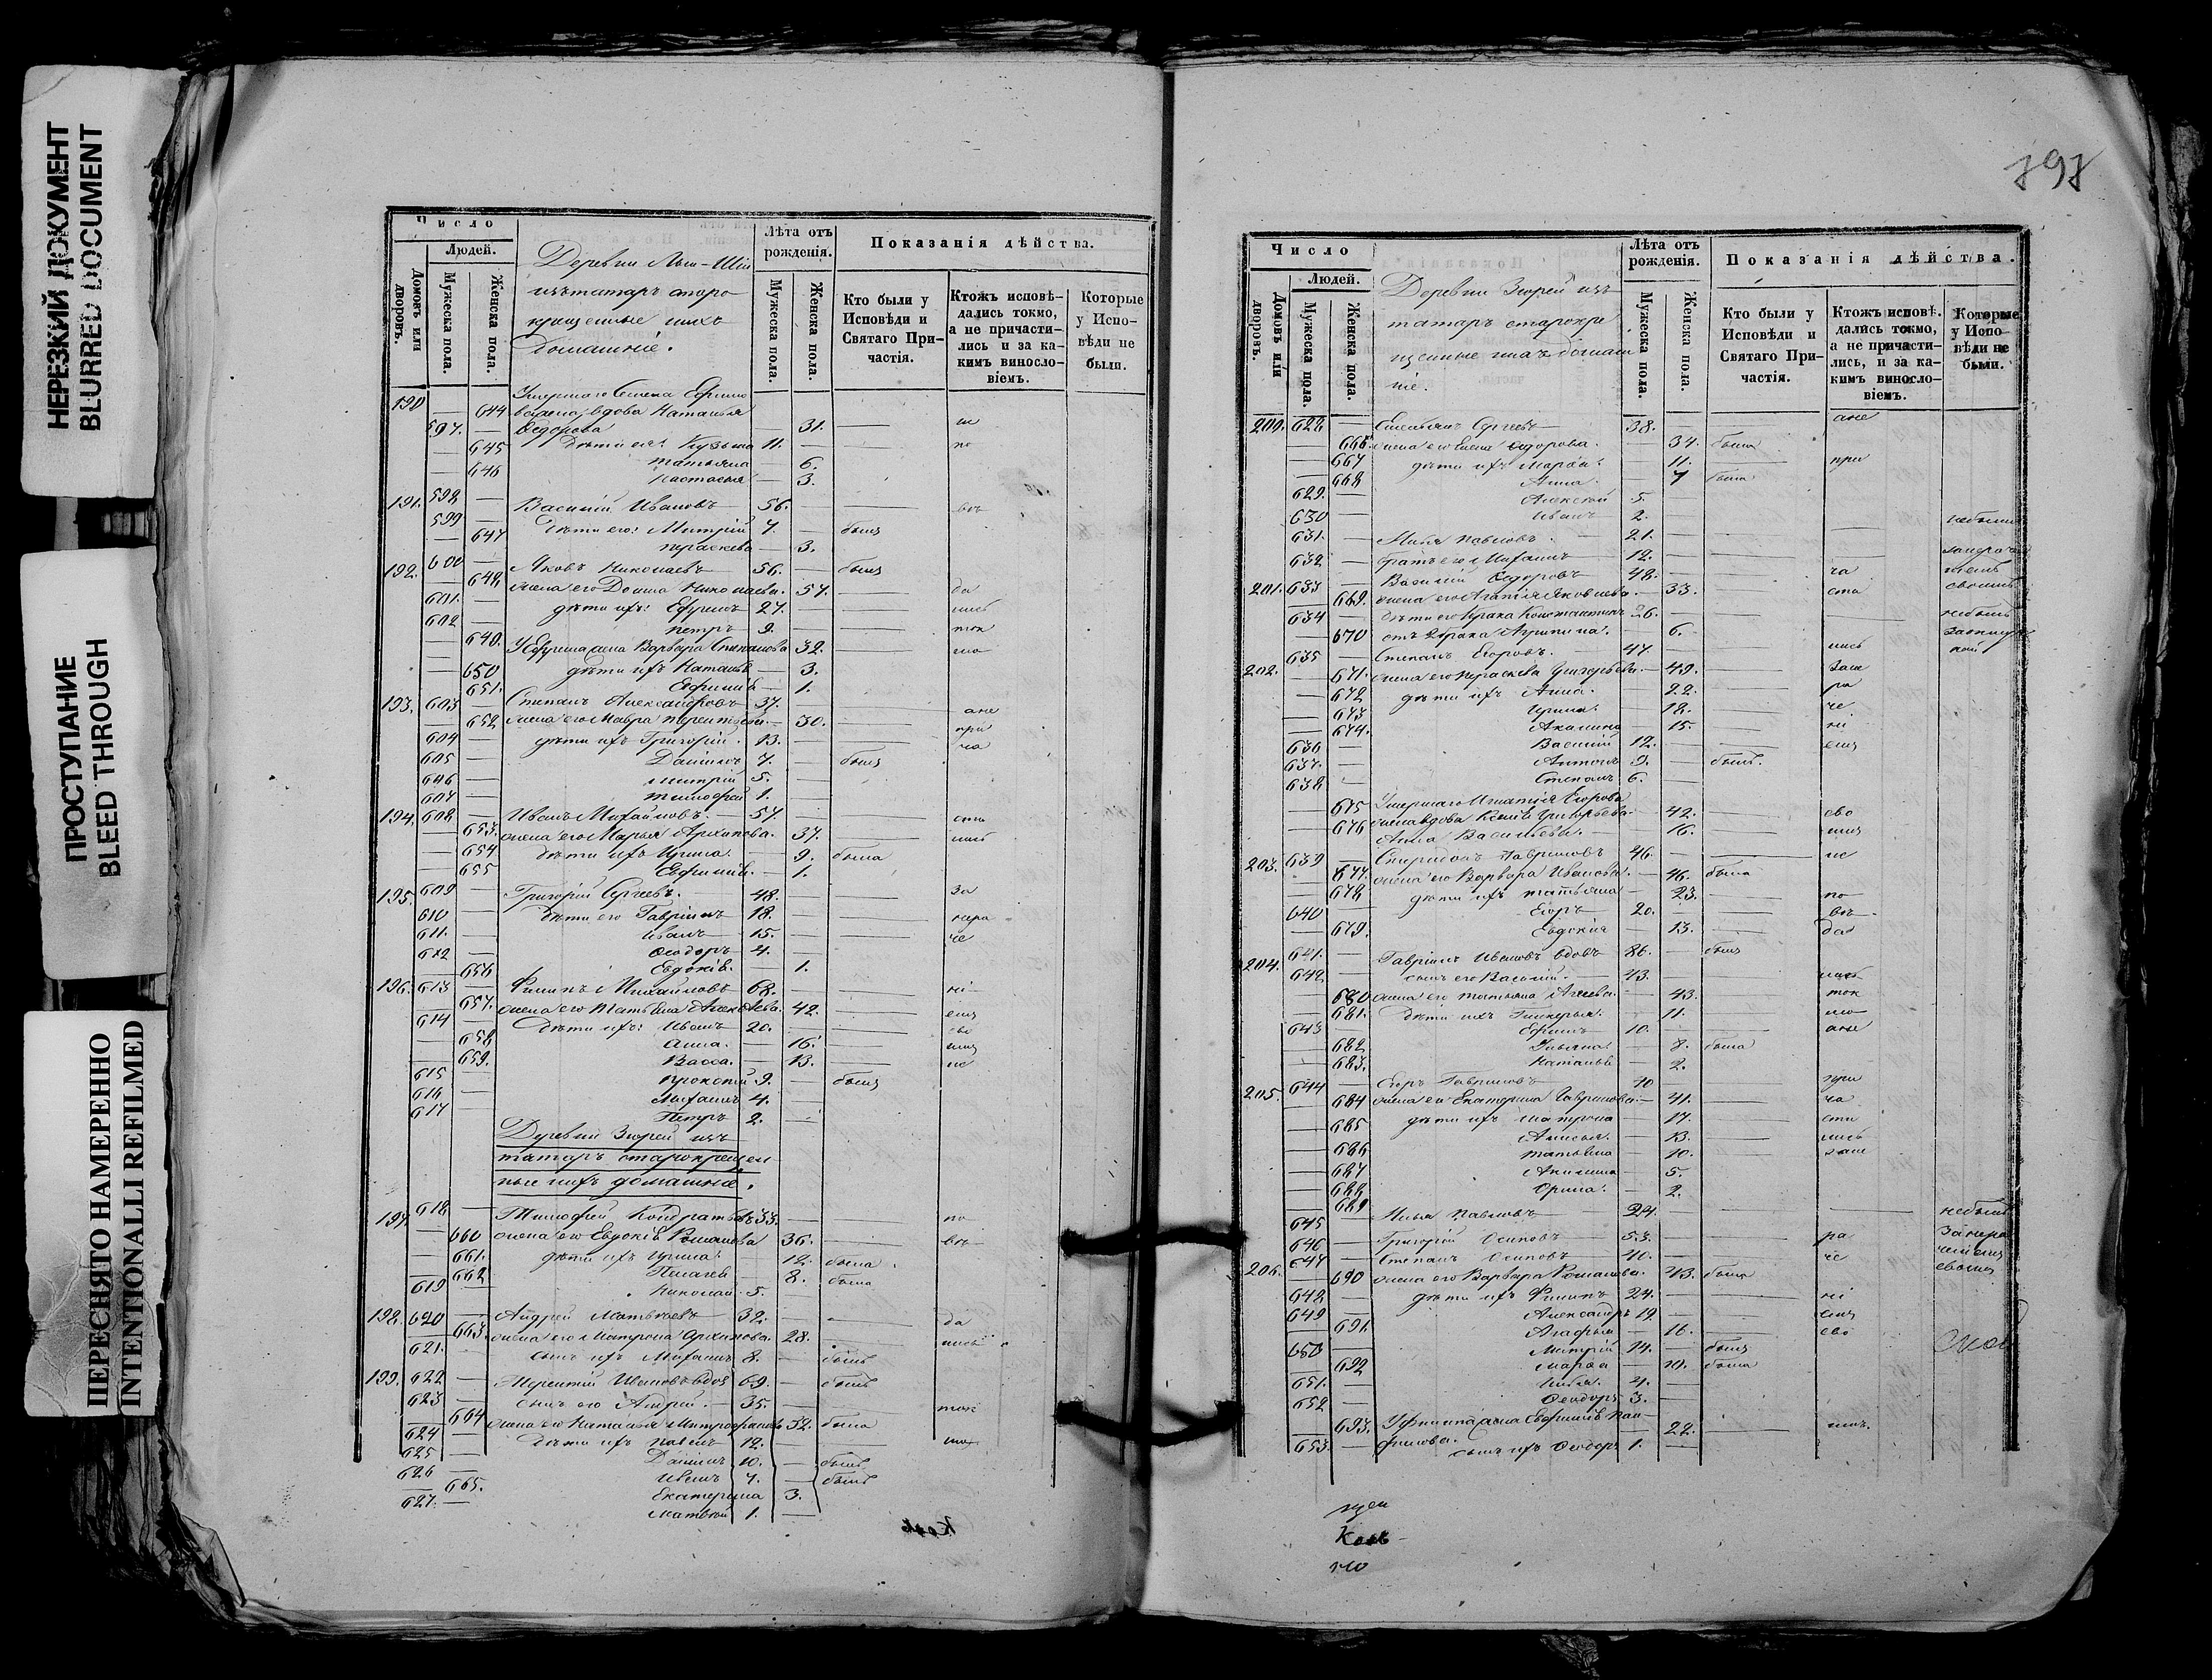 НЕРЕЗКИЙ ДОКУМЕНТ
BLURRED DOCUMENT
ПРОСТУПАНИЕ
BLEED THROUGH
ПЕРЕСНЯТО НАМЕРЕННО
INTENTIONALLI REFILMED
Число
Людей.
Домовъ или дворовъ.
Мужеска пола.
Женска пола.
Лѣта отъ рожденія.
Мужеска пола.
Женска пола.
Показанія дѣйства.
Кто были у Исповѣди и Святаго Причастія.
Ктожъ исповѣдались токмо, а не причастились и за какимъ винословіемъ.
Которые у Исповѣди не были.
изъ татаръ старо
крещенные ихъ
домашніе.
190 644 вдова Наталья
597. Ѳедорова 31.
645 дѣти ея: Кузьма 11. по
646 Татьяна 6.
Настасья 3.
191. 598 Василій Ивановъ 56.
599 дѣти его: Митрій 7. былъ
647 Праскева 3.
192. 600 Яковъ Николаевъ 56. былъ
648 жена его Домна Николаева. 57. да
601. дѣти ихъ: Ефремъ 27. лись
602 Петръ 9. ток
649. У Ефрема жена Варвара Степанова 32. мо
650 дѣти ихъ Наталья 3.
651. Евфимія 1.
193. 603 Степанъ Александровъ 37. ане
652 жена его Мавра 30. при
604 дѣти ихъ Григорій. 13. ча
605 Даніилъ 7. былъ
606 Митрій 5.
607 Тимофей 1.
194. 608 Иванъ Михайловъ. 57. сти
653. жена его Марья Архипова. 37. лись
654 дѣти ихъ Ирина. 9. была
655 Евфимія. 1.
195. 609 Григорій Сергеевъ. 48. за
610 дѣти его Гавріилъ 18. нера
611. Иванъ 15. че
612 Ѳеодоръ 4.
656 Евдокія. 1.
196. 613 Филипъ Михайловъ 68. ні
657. жена его Татьяна Алексѣева. 42. емъ
614 дѣти ихъ: Иванъ 20. сво
658 Анна. 16. имъ
659. Васса. 13. не
615 Прокопій 9. былъ
616 Михаилъ 4.
617 Петръ 2.
Деревни Зюрей изъ
татаръ старокрещен
ные ихъ домашніе.
197. 618 Тимофей Кондратьевъ 33. по
660 жена его Евдокія Романова 36. въ
661. дѣти ихъ Ирина. 12. была
662 Пелагея 8. была
619 Николай 5.
198. 620 Андрей Матвѣевъ 32. да
663. жена его Матрона Архипова. 28. лись
621. сынъ ихъ Михаилъ 8. былъ
199. 622 Терентій Ивановъ вдов 69. былъ
623 сынъ его Андрей. 35. ток
664 жена его Наталья Митрофанова 32. была
624 дѣти ихъ Павелъ 12. мо
625 Даніилъ 10. былъ
626 Иванъ 7. былъ
665. Екатерина 3.
627. Матвей 1.
797
Число
Людей.
Домовъ или дворовъ.
Мужеска пола.
Женска пола.
Лѣта отъ рожденія.
Мужеска пола
Женска пола.
Показанія дѣйства.
Кто были у Исповѣди и Святаго Причастія.
Ктожъ исповѣ. дались токмо, а не причастились, и за какимъ винословіемъ.
Которые у Исповѣди не были.
Деревни Зюрей изъ
татаръ старокре
щенные ихъ домаш
ніе.
200. 628 Емельянъ Сергеевъ 38. ане
666. жена его Елена Ѳедорова. 34. была
667 дѣти ихъ Марѳа. 11. при
668 Анна. 7 была
629. Алексей 5.
630 Иванъ 2.
631. Илья Павловъ. 21. небылъ
632 братъ его Михаилъ 12.
201. 633 Василій Ѳедоровъ 48. ча
669. жена его Агафія Яковлева. 33. сти
634 Константинъ 26.
670 отъ 2 брака Агрипина. 6.
635 Степанъ Егоровъ. 47. лись
202. 671. жена его Праскева Григорьева. 49. зане
672 дѣти ихъ Анна. 22. ра
673 Ирина. 18. че
674. Акилина 15. ні
636 Василій 12. емъ
637. Антонъ 9. былъ.
638 Степанъ 6.
675 Умершаго Игнатія Егорова
676 жена вдова Ксенія Григорьева. 42. сво
Анна Васильева. 16. имъ
203. 639 Спиридонъ Гавриловъ 46. не
677. жена его Варвара Иванова. 46. была
678 дѣти ихъ Татьяна 23. по
640 Егоръ 20. въ
679. Евдокия 13. да
204. 641. Гавріилъ Ивановъ вдовъ 86. былъ
642. сынъ его Василій. 43. лись
680 жена его Татьяна 43. ток
681. дѣти ихъ Гликерья. 11. мо
643 Ефимъ 10. ане
682 Ульяна. 8. была
683. Наталья 2.
205. 644 Егоръ Гавриловъ при
684 жена его Екатерина Гаврилова. 41. ча
685 дѣти ихъ Матрона 17. сти
686 Анисья. 13. лись
687 Татьяна 10. зане
688 Акилина 5.
689 Орина. 2.
645 Илья Павловъ 24. небылъ
646 Григорій Осиповъ 53. ра
206. 647 Степанъ Осиповъ 40. че
690 жена его Варвара Романова. 43. была
648 дѣти ихъ Филипъ 24. ні
649 Александръ 19 емъ
691. Агафья 16. сво
650 Митрій 14. былъ
692 Марѳа 10. была
651. Илья. 4.
652 Ѳеодоръ 3.
693. У Филипа жена Евфимія Пан
филова. 22. имъ.
653. сынъ ихъ Ѳеодоръ 1.